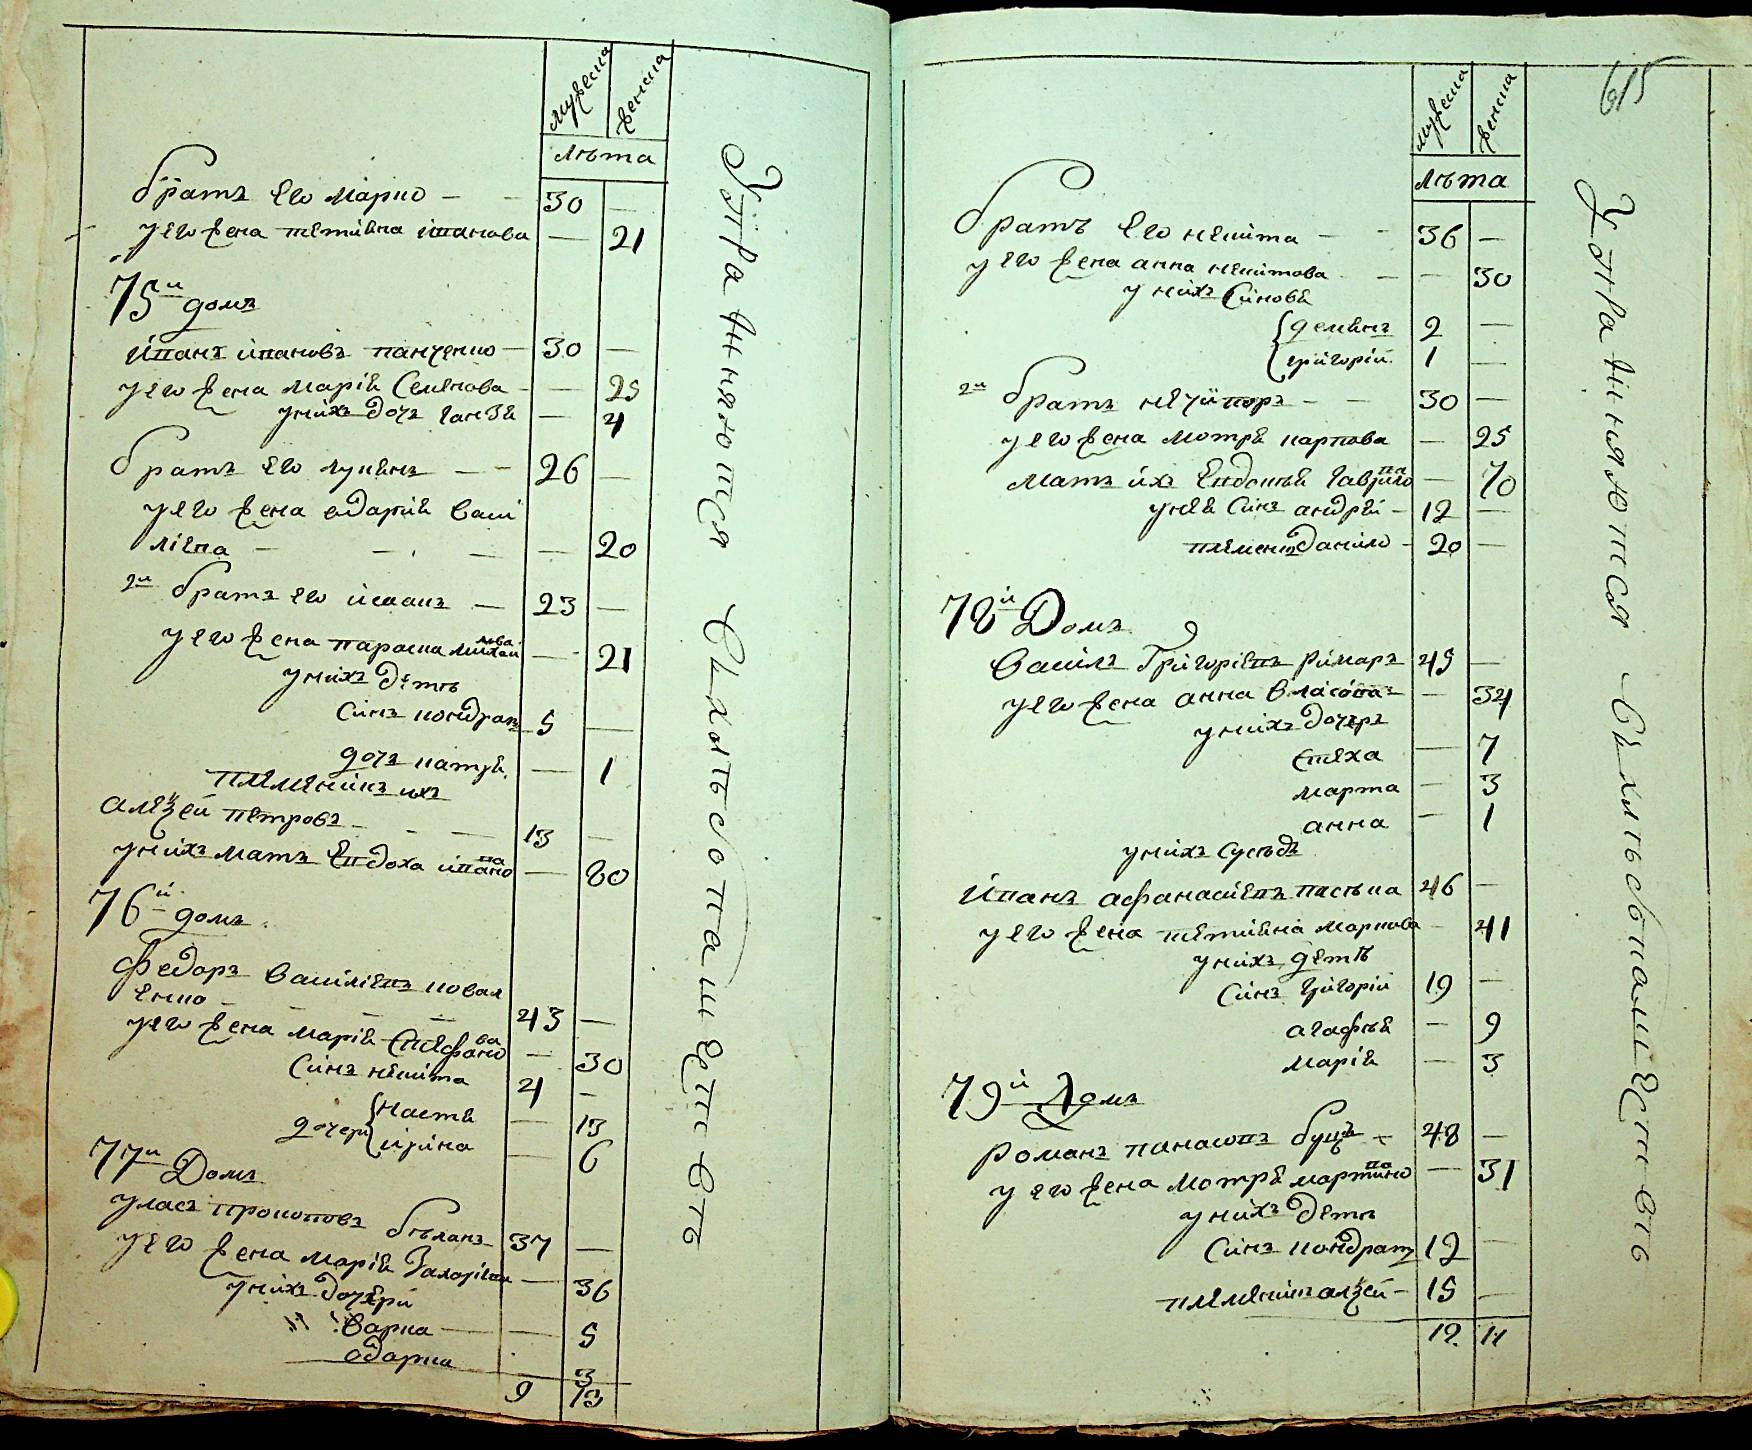 мужеска
женска
лѣта
братъ его марко — — 30 —
у его жена тетияна иванова — 21
75й домъ
іванъ ивановъ панченко — 30 —
у его жена марія Семенова — 25
у нихъ дочь ганзя — 4
братъ его лукянъ — — 26 —
у его жена одарія васи
ліева — — — — 20
2й братъ его исаакъ — 23 —
у его жена параска михай
лова — 21
у нихъ дети
синъ кондратъ 5 —
дочь катря — 1
племеникъ ихъ
алеѯей петровъ — — 13 —
у нихъ мать Евдоха ивано
ва — 80
76й домъ
Федоръ василіевъ ковал
енко — — — 43 —
у его жена марія Стефано
ва — 30
Синъ никита 4 —
дочери { настя — 13
ирина — 6
77й Домъ
уласъ прокоповъ бѣланъ 37 —
у его жена марія Захаріева — 36
у нихъ дочери
варка — — 5
одарка 3
9 13
У отправляются
615
мужеска
женска
лѣта
братъ его никита — — 36 —
у его жена анна никитова — — 30
у нихъ Синовя
{ демянъ 2 —
григорій 1 —
2й братъ нечипоръ — — 30 —
у его жена мотря карпова — 25
мать ихъ Евдокія гаврило
ва — 70
у нея Синъ андрей — 12 —
племен данило — 20 —
78й Домъ
василь Григоріевъ римаръ 45 —
у его жена анна власова — 34
у нихъ дочеръ
стеха — 7
марта — 3
анна — 1
у нихъ сусѣдъ
іванъ афанасіевъ 46 —
у его жена тетияна маркова — 41
у нихъ дети
синъ григорій 19 —
агафія — 9
марія — 3
79й Домъ
романъ панасовъ буцъ — 48 —
у его жена мотря мартино
ва — 31
у нихъ дети
синъ кондратъ 12 —
племеникъ алеѯей — 15 —
12 11